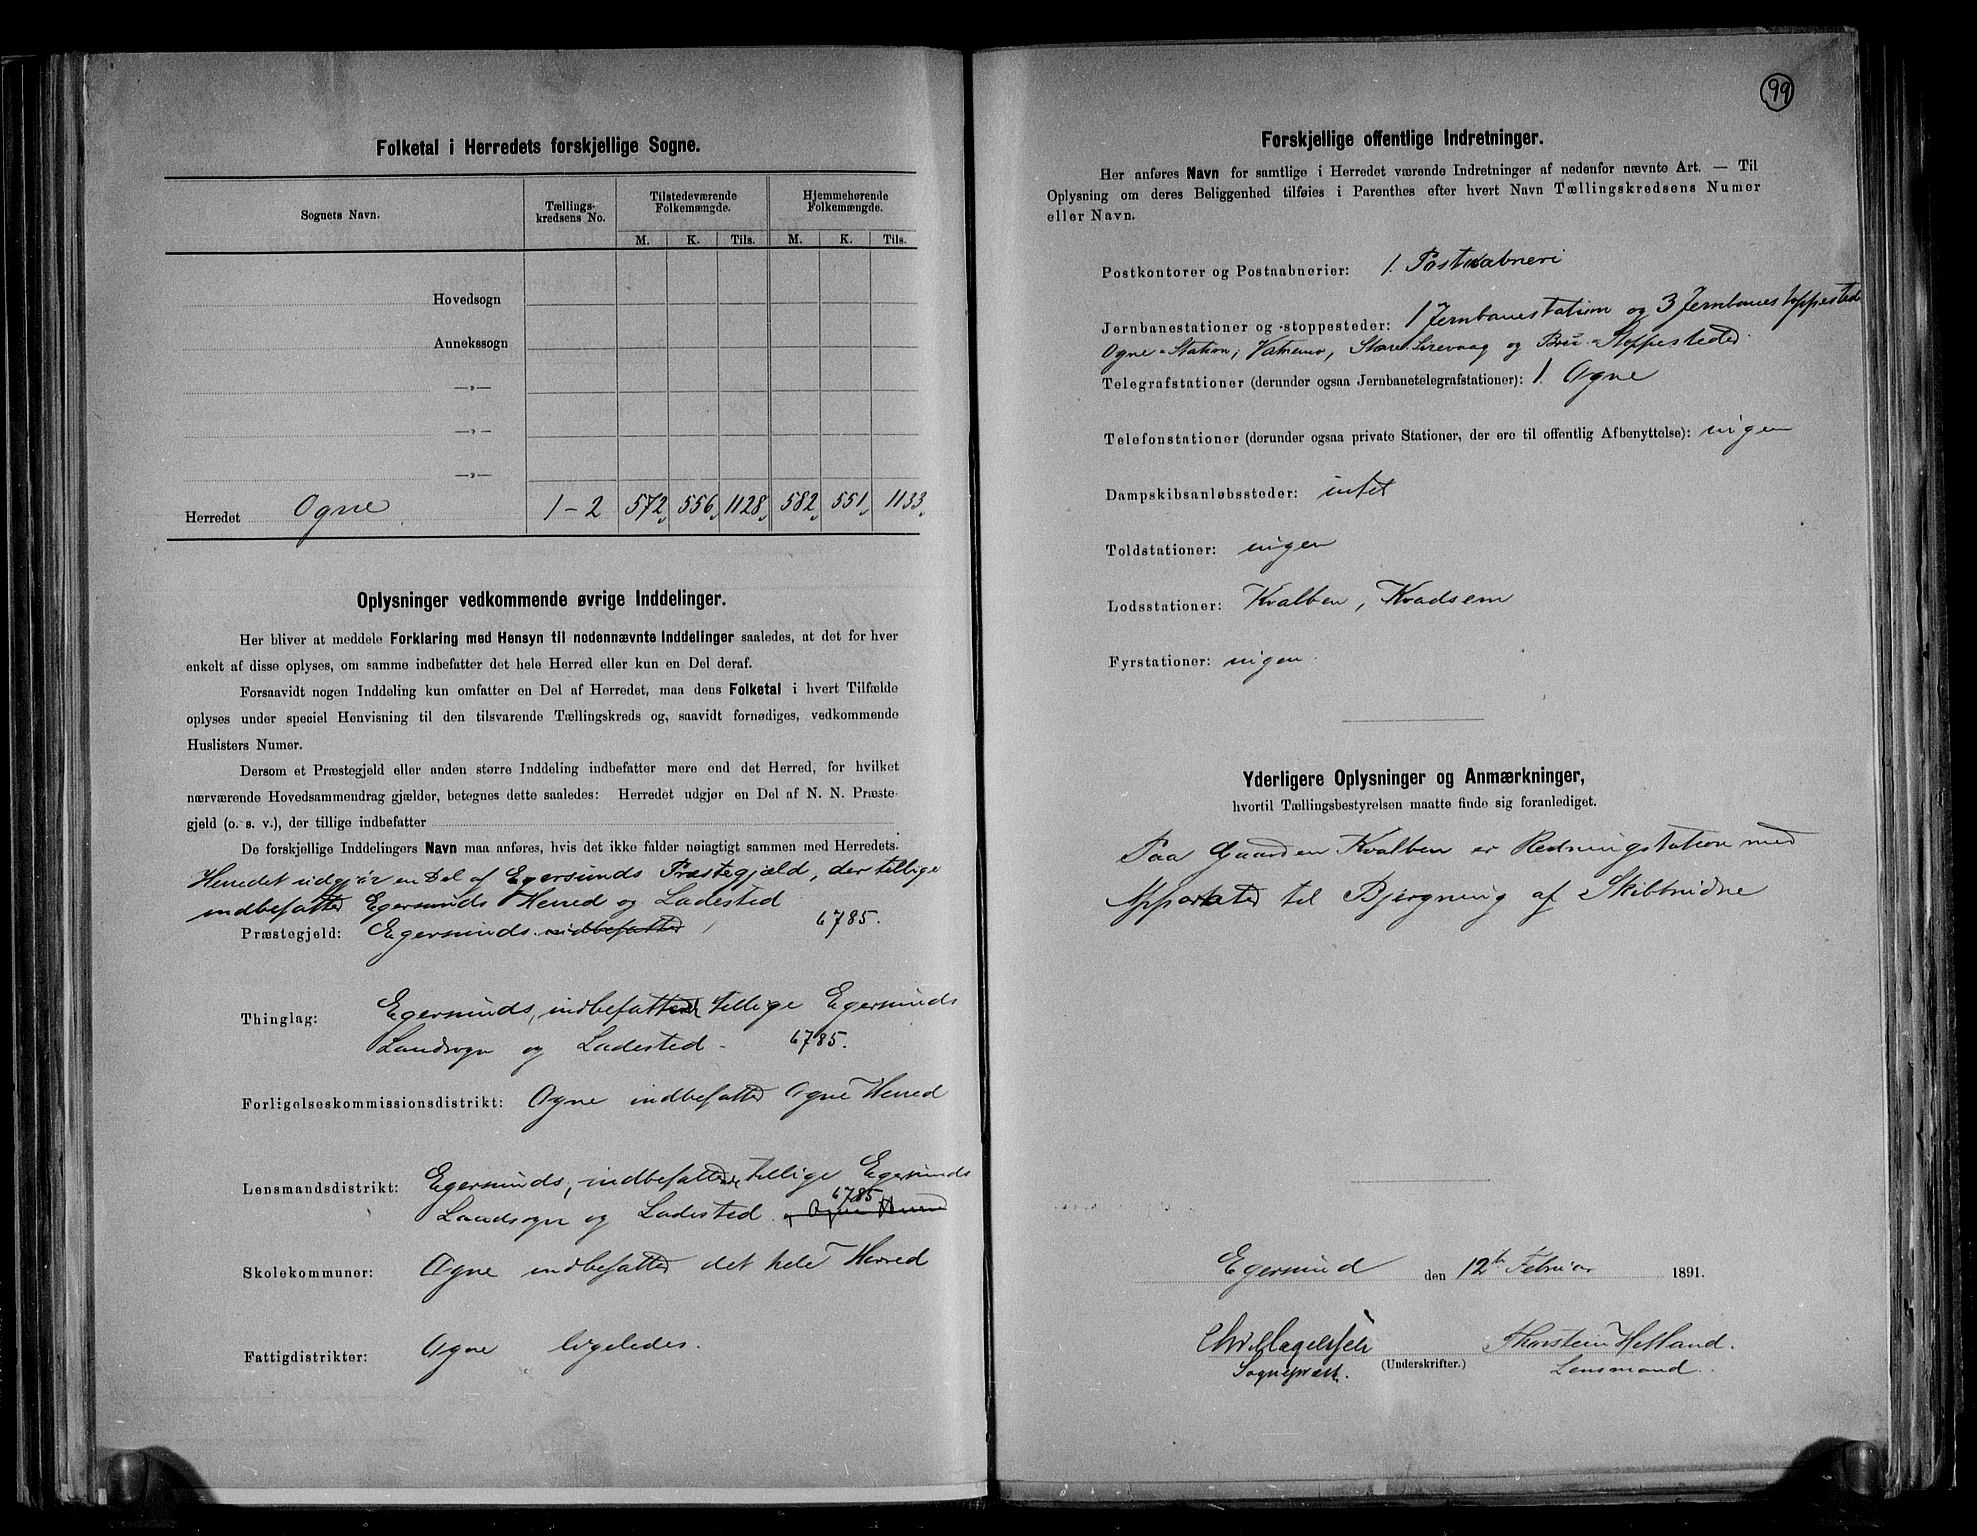 Folketal i Herredets forskjellige Sogne.
Sognets Navn. Tællings-kredsens No. Tilstedeværende Folkemængde. Hjemmehørende Folkemængde.
M. K. Tils. M. K. Tils.
Hovedsogn
Annekssogn
—»—
—»—
—»—
Herredet Ogne 1-2 572 556 1128 582 551 1133
Oplysninger vedkommende øvrige Inddelinger.
Her bliver at meddele Forklaring med Hensyn til nedennævnte Inddelinger saaledes, at det for hver
enkelt af disse oplyses, om samme indbefatter det hele Herred eller kun en Del deraf.
Forsaavidt nogen Inddeling kun omfatter en Del af Herredet, maa dens Folketal i hvert Tilfælde
oplyses under speciel Henvisning til den tilsvarende Tællingskreds og, saavidt fornødiges, vedkommende
Huslisters Numer.
Dersom et Præstegjeld eller anden større Inddeling indbefatter mere end det Herred, for hvilket
nærværende Hovedsammendrag gjælder, betegnes dette saaledes: Herredet udgjør en Del af N. N. Præste-
gjeld (o. s. v.), der tillige indbefatter
De forskjellige Inddelingers Navn maa anføres, hvis det ikke falder nøiagtigt sammen med Herredets.
Herredet udgjør en Del af Egersunds Præstegjæld, der tillige
indbefatter Egersunds Herred og Ladested
Præstegjeld: Egersunds indbefatter 6785.
Thinglag: Egersunds, indbefattende tillige Egersunds
Landsogn og Ladested. 6785.
Forligelseskommissionsdistrikt: Ogne indbefatter Ogne Herred
Lensmandsdistrikt: Egersunds, indbefattende tillige Egersunds
6785
Landsogn og Ladested. og Ogne Herred
Skolekommuner: Ogne indbefatter det hele Herred
Fattigdistrikter: Ogne ligeledes.
99
Forskjellige offentlige Indretninger.
Her anføres Navn for samtlige i Herredet værende Indretninger af nedenfor nævnte Art. — Til
Oplysning om deres Beliggenhed tilføies i Parenthes efter hvert Navn Tællingskredsens Numer
eller Navn.
Postkontorer og Postaabnerier: 1. Postaabneri
Jernbanestationer og -stoppesteder: 1 Jernbanestation og 3 Jernbanestoppesteder
Ogne-Station, Vatnemo, Sirevaag og Bru-Stoppesteder.
Telegrafstationer (derunder ogsaa Jernbanetelegrafstationer): 1. Ogne
Telefonstationer (derunder ogsaa private Stationer, der ere til offentlig Afbenyttelse): ingen
Dampskibsanløbssteder: intet
Toldstationer: ingen
Lodsstationer: Kvalben, Kvadsem
Fyrstationer: ingen.
Yderligere Oplysninger og Anmærkninger,
hvortil Tællingsbestyrelsen maatte finde sig foranlediget.
Paa Gaarden Kvalben er Redningstation med
Apparater til Bjergning af Skibbrudne
Egersund den 12te Februar 1891.
Thorstein Helland.
(Underskrifter.)
Sognepræst. Lensmand.